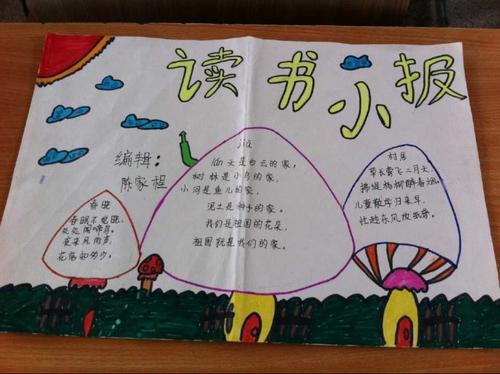 读书小报
编辑：
陈家程
家
蓝天是白云的家，
树林是小鸟的家，
小河是鱼儿的家，
泥土是种子的家。
我们是祖国的花朵，
祖国就是我们的家。
春晓
春眠不觉晓，
处处闻啼鸟。
夜来风雨声，
花落知多少。
村居
草长莺飞二月天，
拂堤杨柳醉春烟。
儿童散学归来早，
忙趁东风放纸鸢。